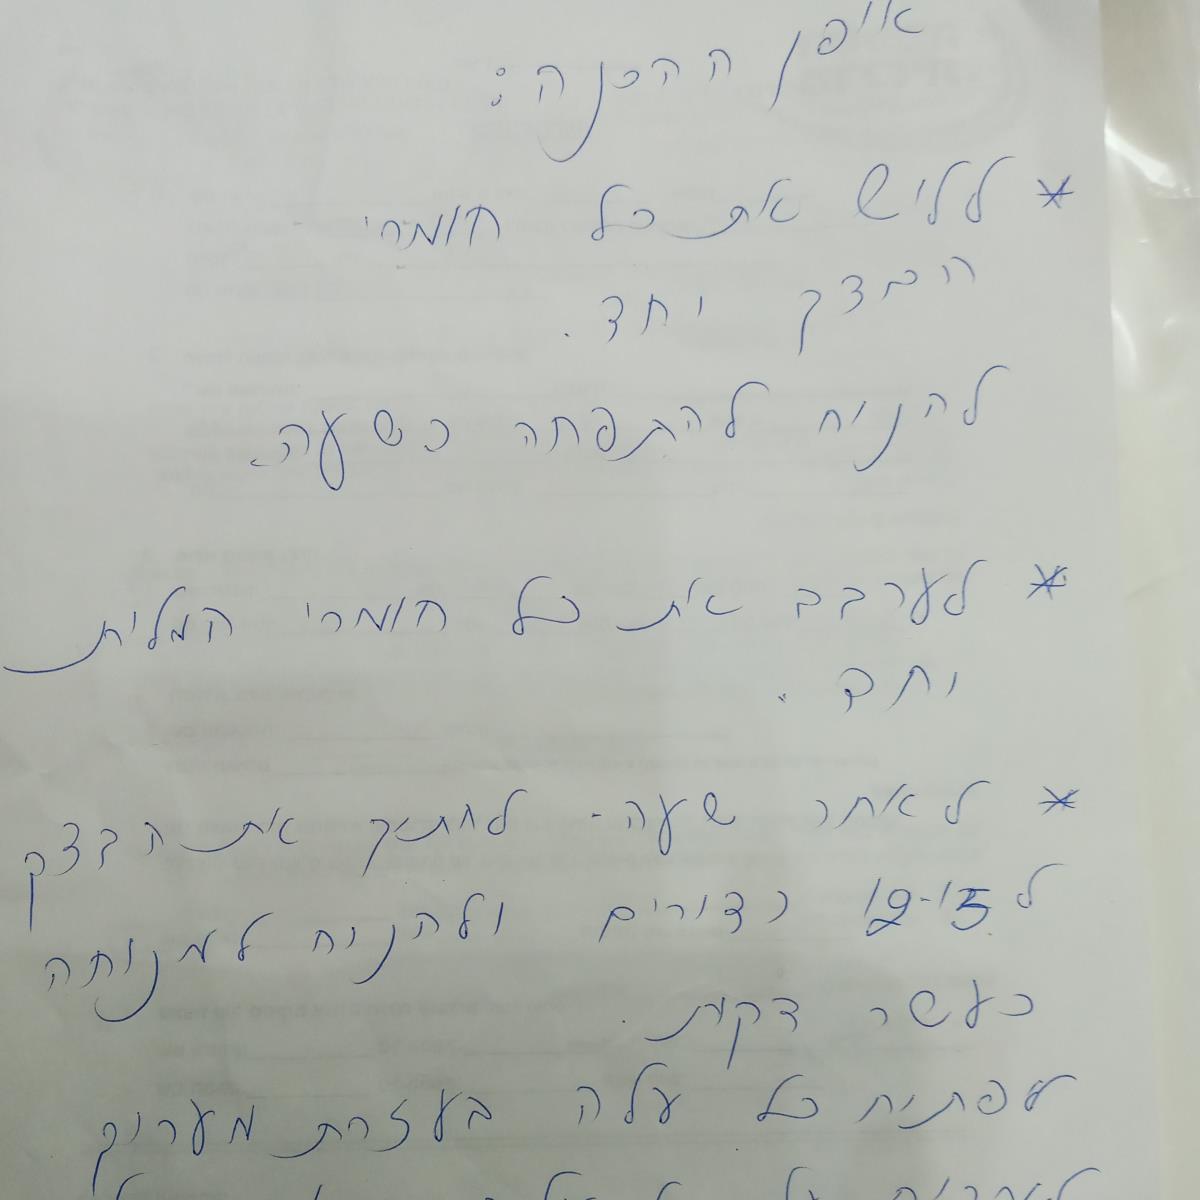 אופן ההכנה:
* ללוש את כל חומרי
הבצק יחד.
להניח להתפחה כשעה.
* לערבב את כל חומרי המלית
יחד.
* לאחר שעה - לחתיך את הבצק
ל 12-15 כדורים ולהניח למנוחה
כעשר דקות.
לפתוח כל עלה בעזרת מערוך